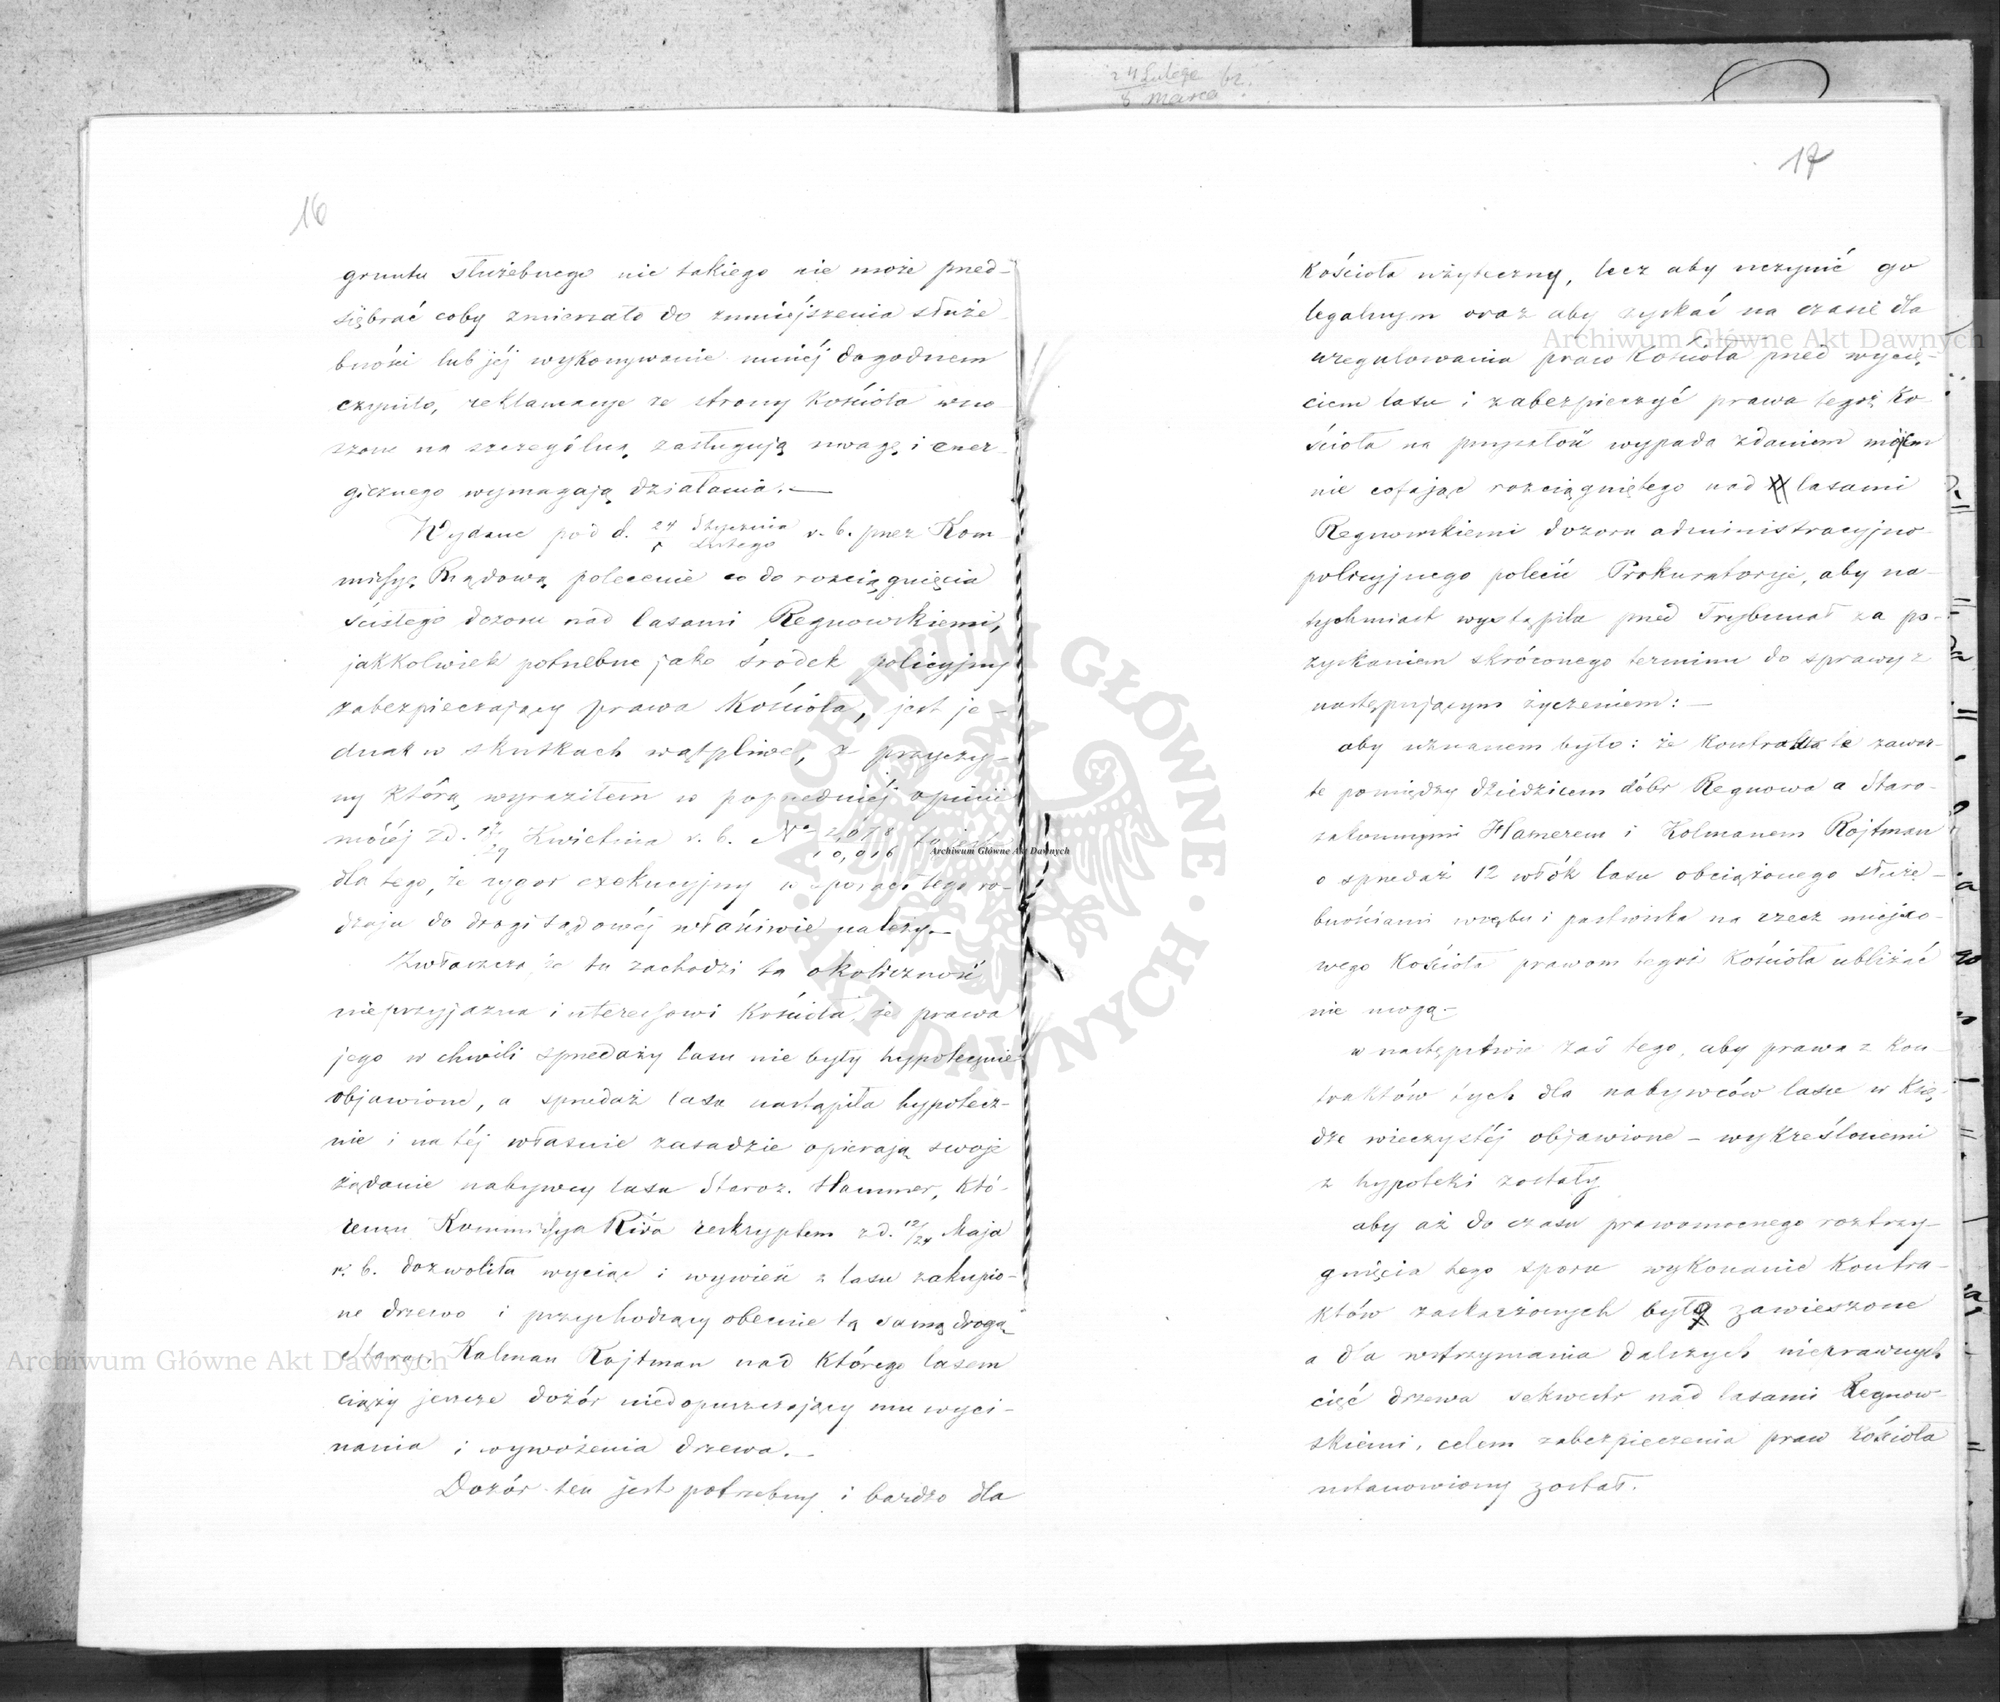 24 Lutego br.
8 Marca
16
gruntu służebnego nic takiego nie może pried-
siębrać coby zmierzało do zmniéjszenia służe
bności lub jéj wykonywanie mniéj dogodnem
czyniło, reklamacye ze strony Kościoła wno
szone na szczególną zasługują uwagę i ener-
gicznego wymagają działania. —
Wydane pod d. 24 Stycznia r. b. przez Kom-
5 Lutego
missyę Rządową polecenie co do rozciągnięcia
ścisłego dozoru nad lasami Regnowskiemi,
jakkolwiek potrzebne jako środek policyjny
zabezpieczający prawa Kościoła, jest je-
dnak w skutkach wątpliwe, z przyczy-
ny którą wyraziłem w poprzedniéj opinii
mojéj z d. 12/24 Kwietnia r. b. No 2078
10,016 to jest
dla tego, że rygor exekucyjny w sporach tego ro-
dzaju do drogi sądowéj właściwie należy. —
Zwłaszcza że tu zachodzi ta okoliczność
nieprzyjazna interessowi Kościoła, że prawa
jego w chwili sprzedaży lasu nie były hypotecznie
objawione, a sprzedaż lasu nastąpiła hypotecz-
nie i na téj własnie zasadzie opierają swoje
żądanie nabywcy lasu Staroz. Hammer, któ-
remu Kommissya Rźa reskryptem z d. 12/24 Maja
r. b. dozwoliła wyciąć i wywieść z lasu zakupio-
ne drzewo i przychodzący obecnie tą samą drogą
Staroz. Kalman Rojtman nad którego lasem
ciąży jeszcze dozór niedopuszczający mu wyci-
nania i wywożenia drzewa. —
Dozór ten jest potrzebny i bardzo dla
17
Kościoła użyteczny, lecz aby uczynić go
legalnym oraz aby zyskać na czasie dla
uregulowania praw Kościoła przed wycię-
ciem lasu i zabezpieczyć prawa tegoż Ko-
ścioła na przyszłość wypada zdaniem mojem
nie cofając rozciągniętego nad lasami
Regnowskiemi dozoru administracyjno-
policyjnego polecić Prokuratoryi, aby na-
tychmiast wystąpiła przed Trybunał za po-
zyskaniem skróconego terminu do sprawy z
następującym życzeniem: —
aby uznanem było: że Kontrakta te zawar-
te pomiędzy dziedzicem dóbr Regnowa a Staro-
zakonnymi Hamerem i Kolmanem Rojtman
o sprzedaż 12 włók lasu obciążonego służe-
bnościami wrębu i pastwiska na rzecz miejsco-
wego Kościoła prawom tegoż Kościoła ubliżać
nie mogą. —
w następstwie zaś tego, aby prawa z Kon-
traktów tych dla nabywców lasu w Ksie,
dze wieczystéj objawione – wykreślonemi
z hypoteki zostały
aby aż do czasu prawomocnego roztrzy-
gnięcia tego sporu wykonanie Kontra-
któw zaskarżonych było zawieszone
a dla wstrzymania dalszych nieprawnych
cięć drzewa sekwestr nad lasami Regnow-
skiemi, celem zabezpieczenia praw Kościoła
ustanowiony został.
Archiwum Główne Akt Dawnych
Archiwum Główne Akt Dawnych
Archiwum Główne Akt Dawnych
ARCHIWUM GŁÓWNE
AKT DAWNYCH